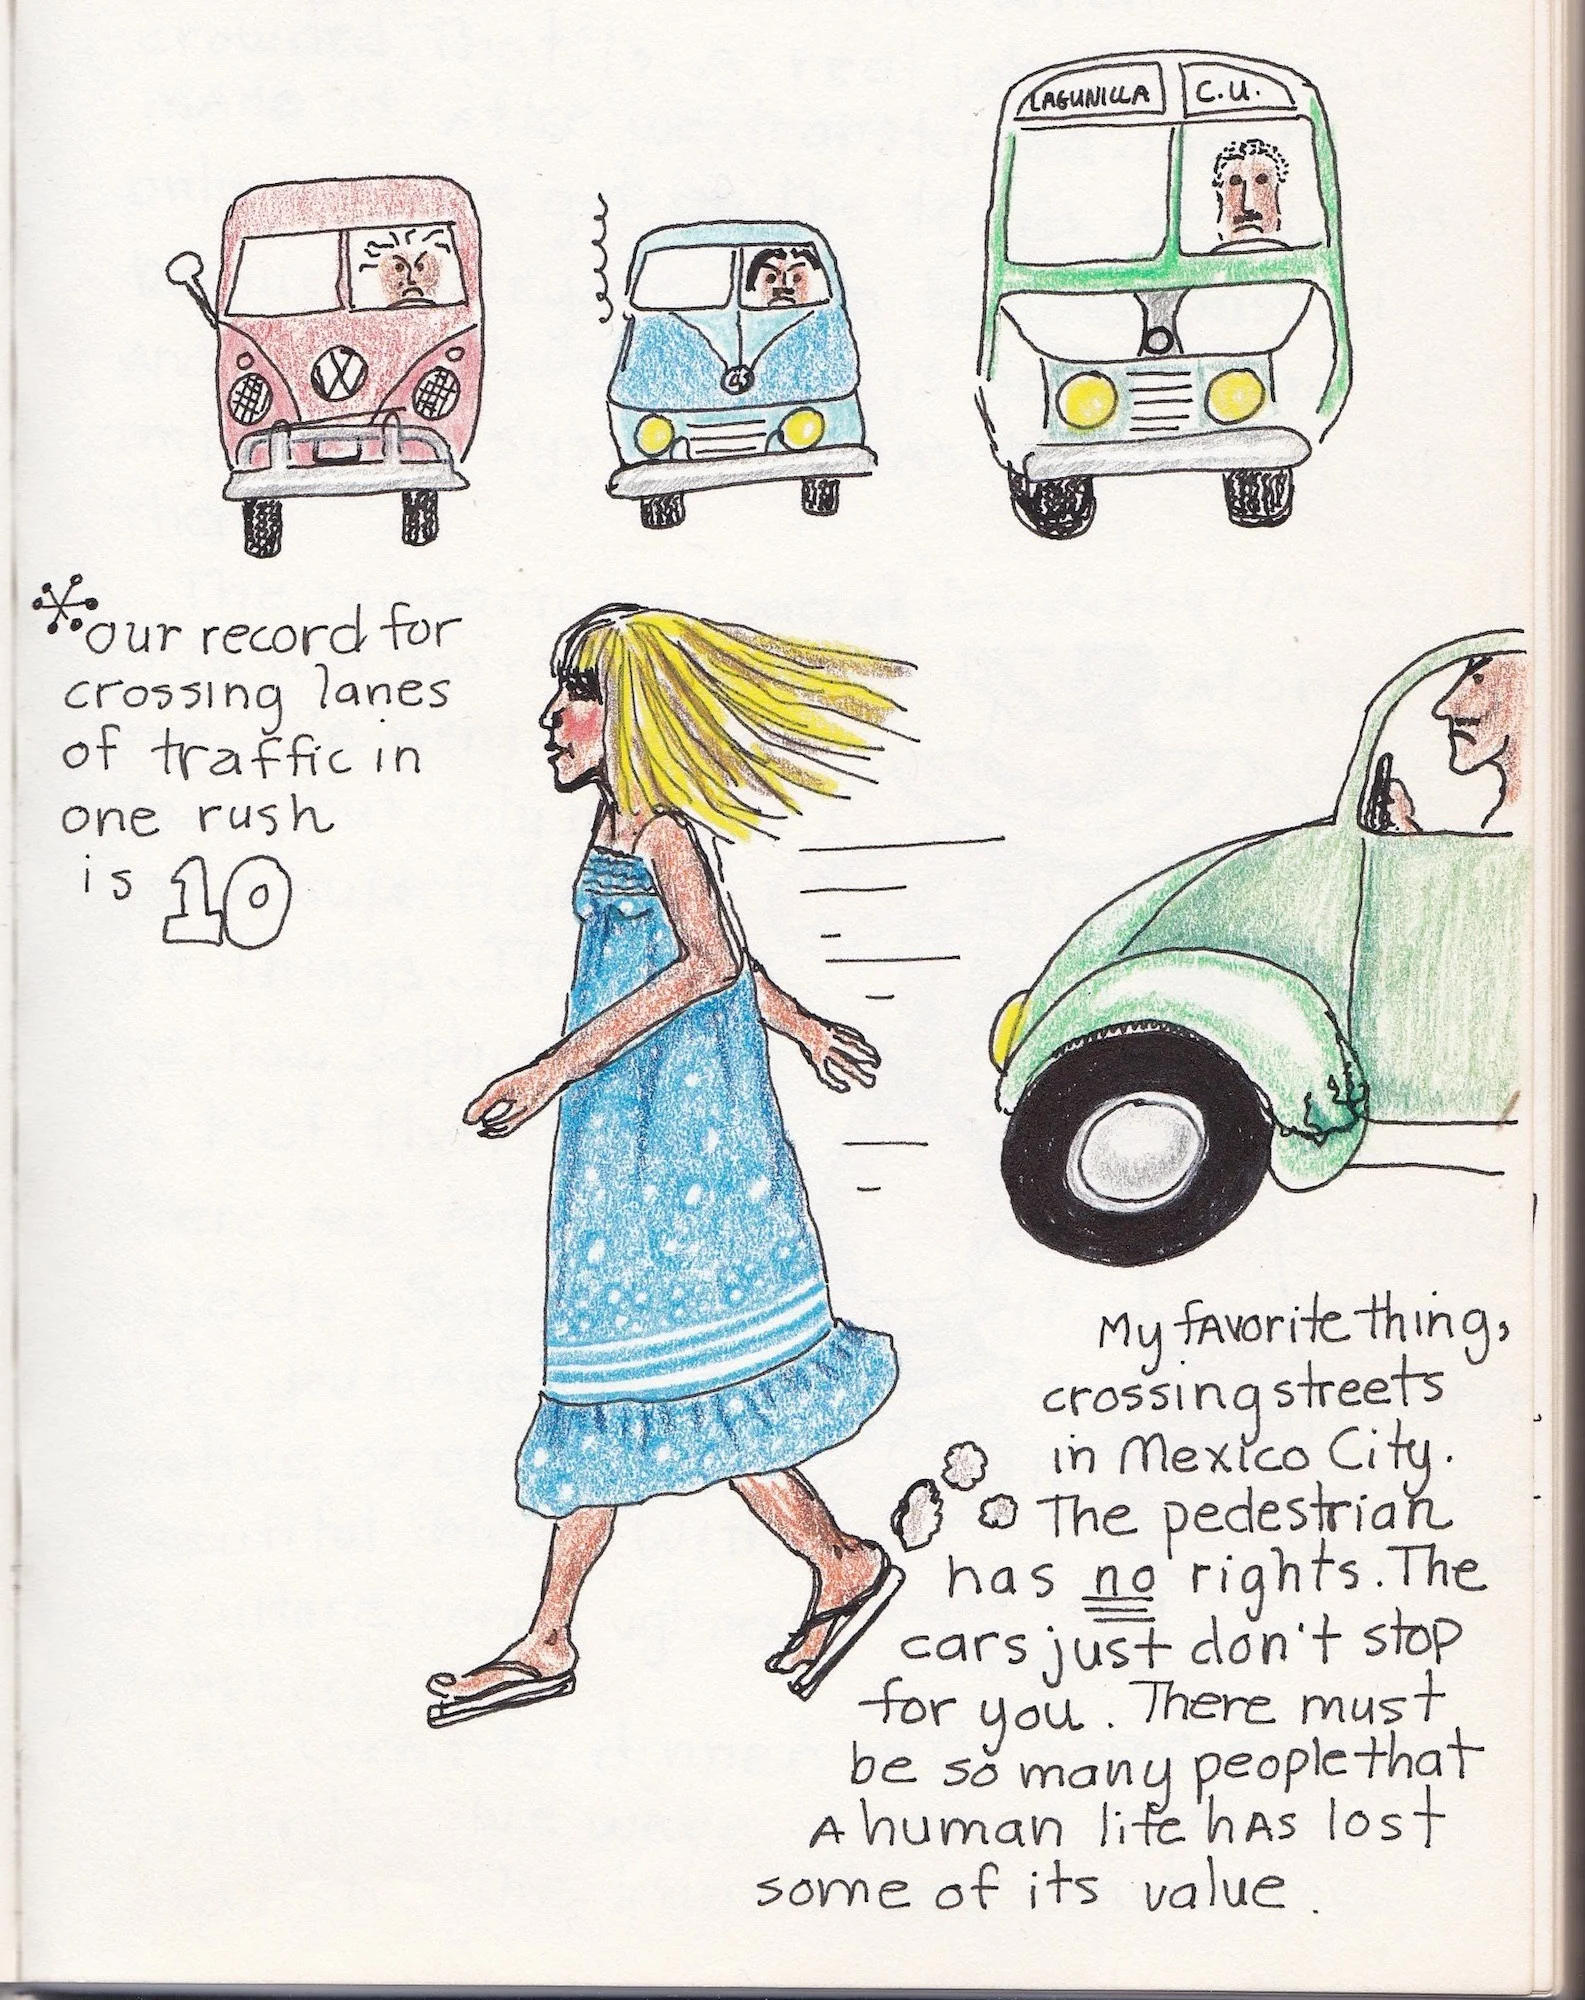 LAGUNILLA C.U.
*our record for
crossing lanes
of traffic in
one rush
is 10
My favorite thing,
crossing streets
in Mexico City.
The pedestrian
has no rights. The
cars just don't stop
for you. There must
be so many people that
A human life hAs lost
some of its value.